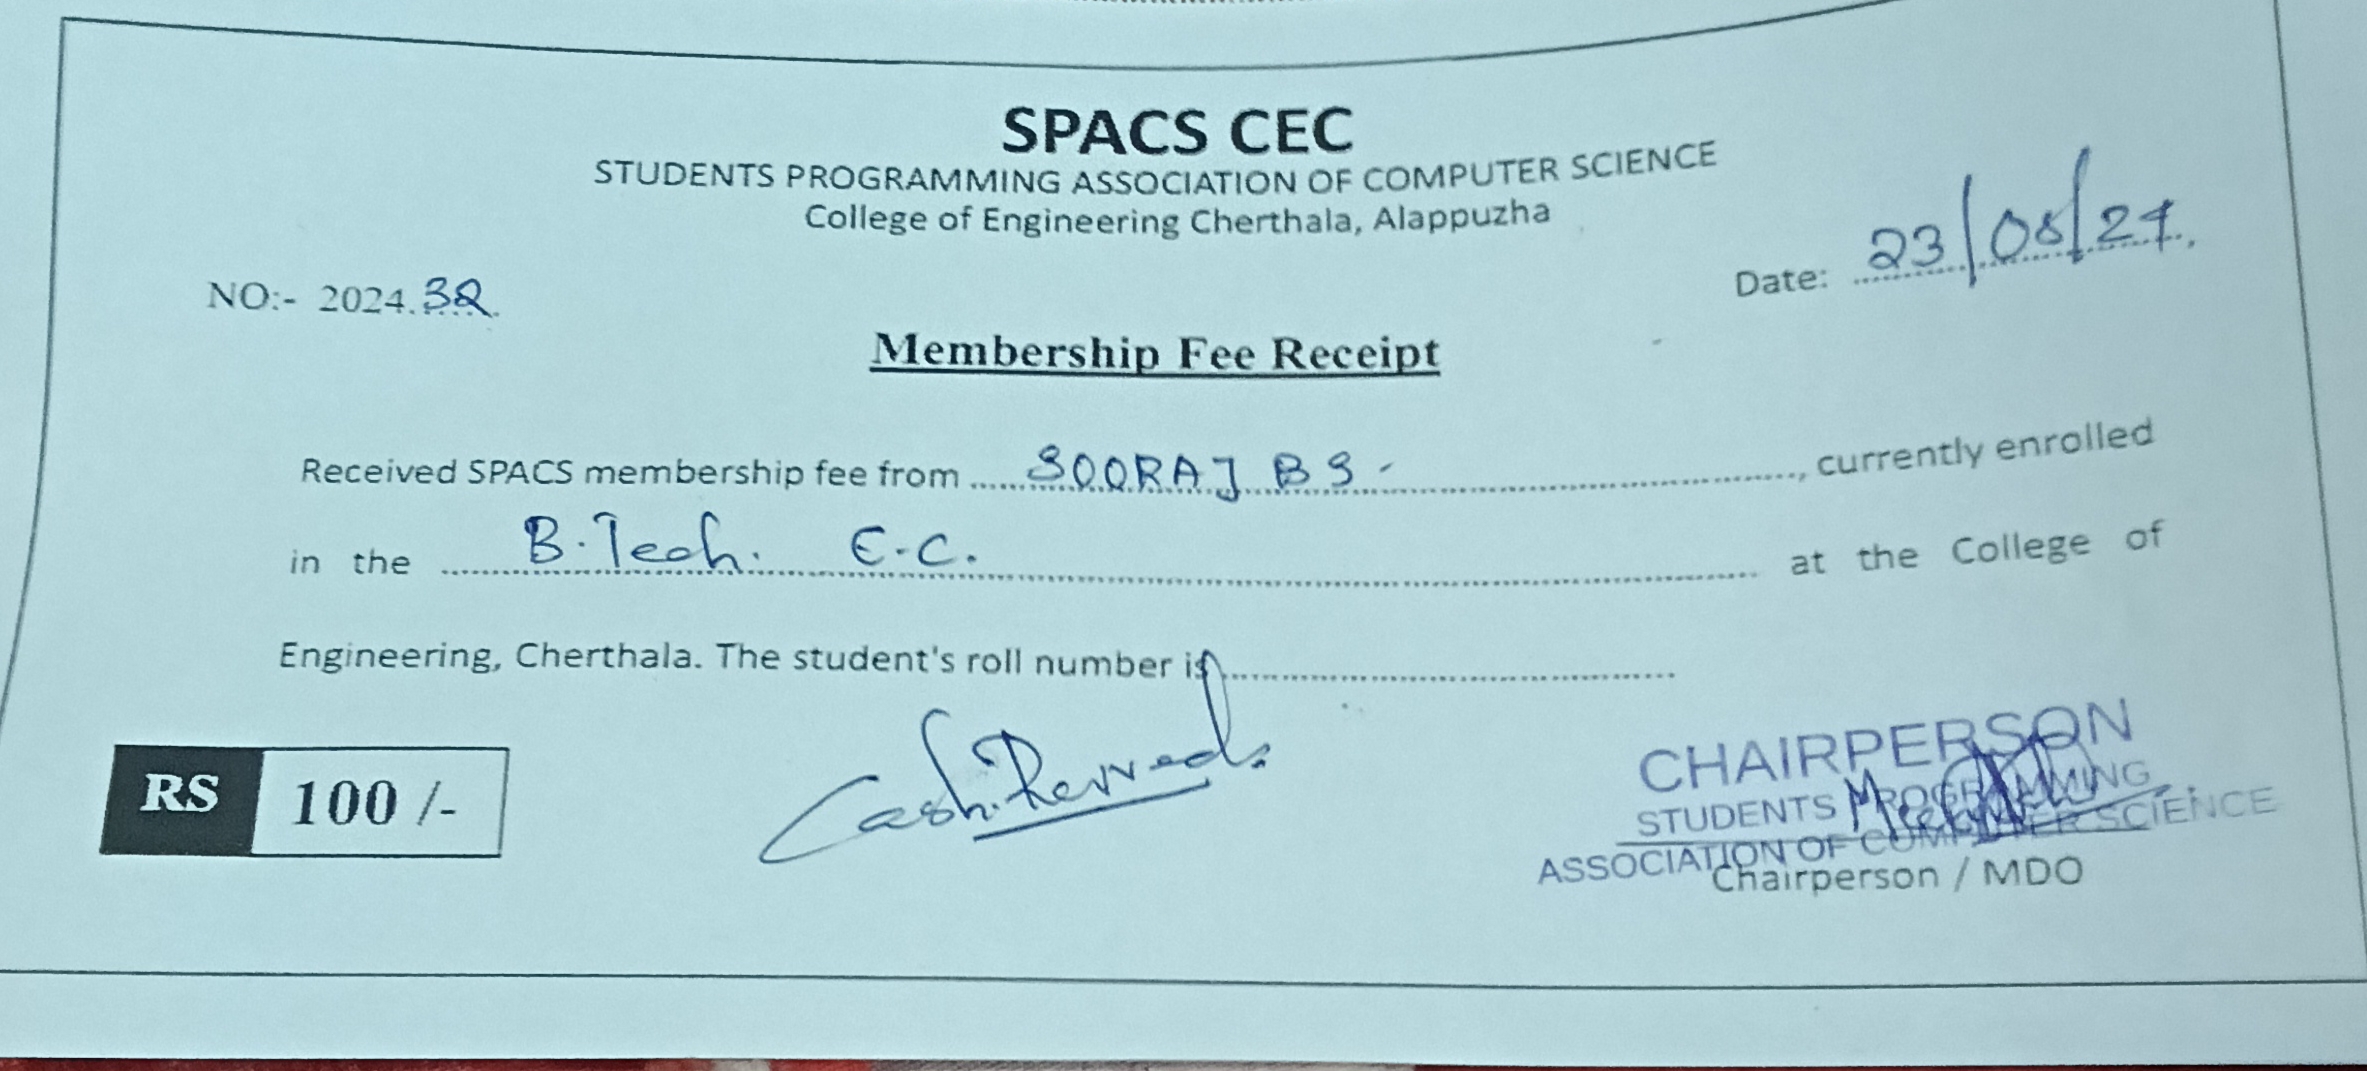 SPACS CEC
STUDENTS PROGRAMMING ASSOCIATION OF COMPUTER SCIENCE
College of Engineering Cherthala, Alappuzha
NO:- 2024.32
Date: 23/08/24
Membership Fee Receipt
Received SPACS membership fee from SOORAJ B S, currently enrolled
in the B.Tech. E.C. at the College of
Engineering, Cherthala. The student's roll number is
RS 100 /-
Cash
CHAIRPERSON
STUDENTS PROGRAMMING
ASSOCIATION OF COMPUTER SCIENCE
Chairperson / MDO